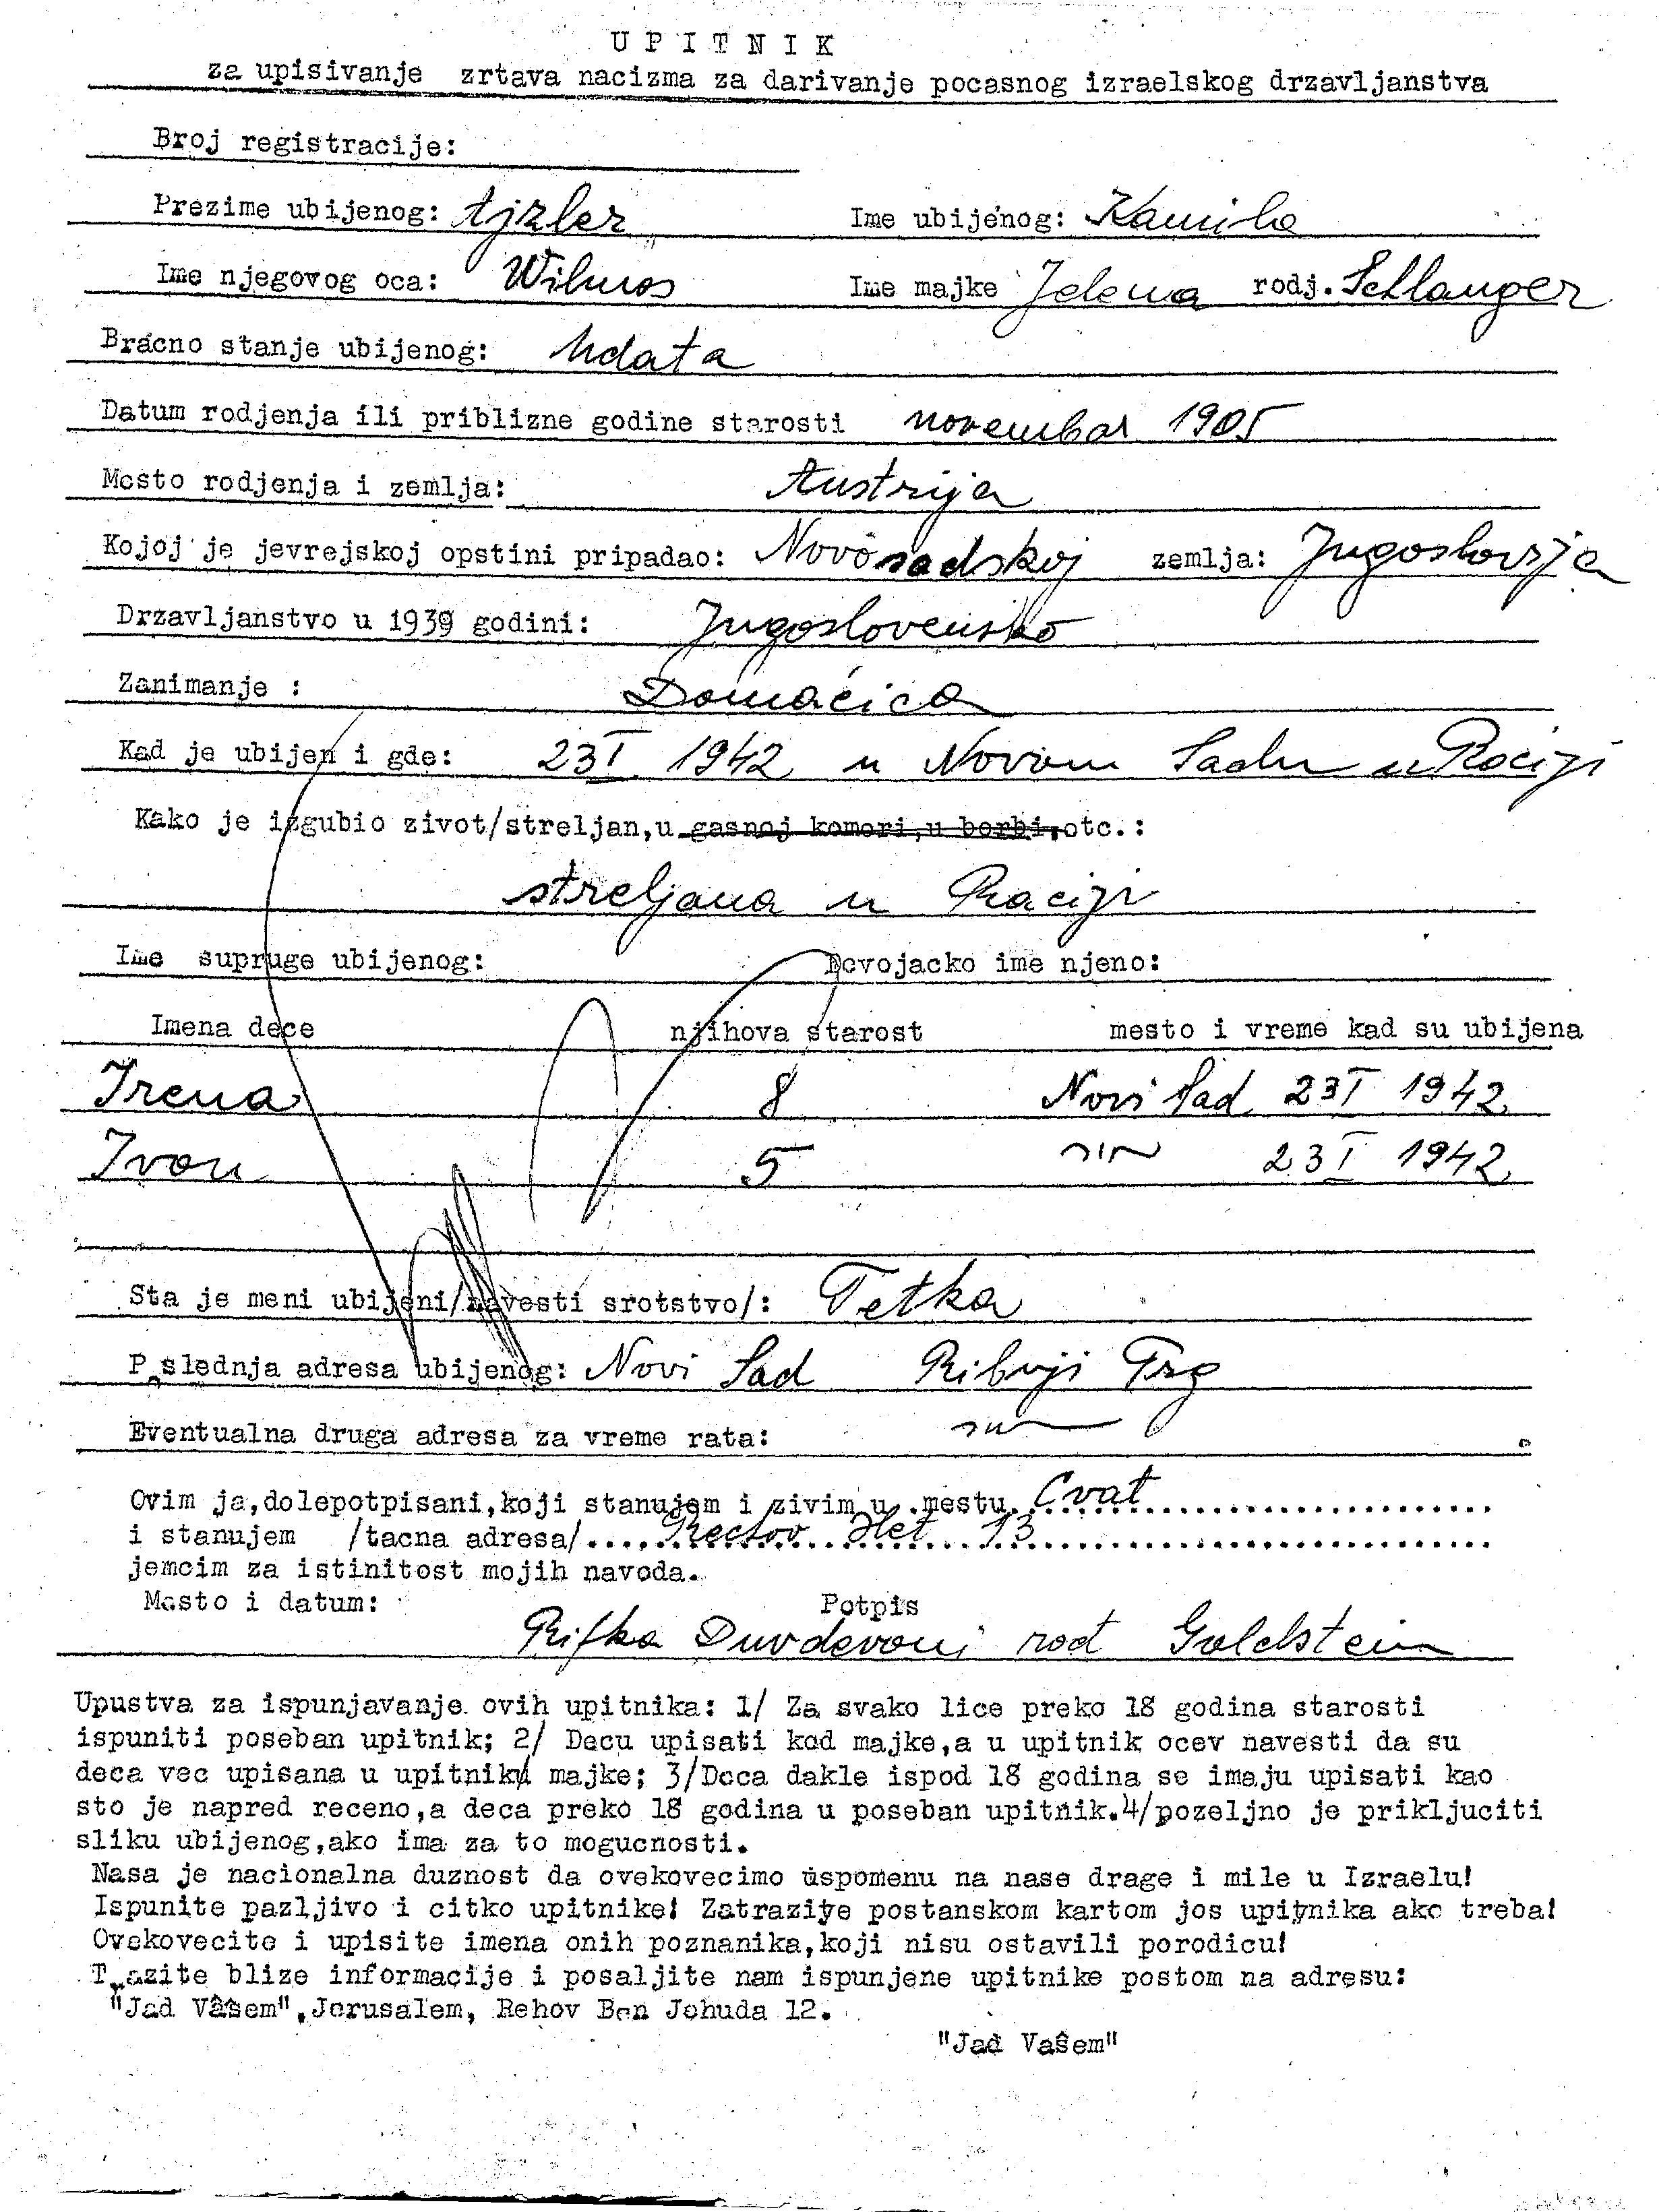 U P I T N I K
za upisivanje zrtava nacizma za darivanje pocasnog izraelskog drzavljanstva
Broj registracije:
Prezime ubijenog: Ajzler Ime ubijenog: Kamila
Ime njegovog oca: Wilmos Ime majke Jelena rodj. Schlanger
Bracno stanje ubijenog: Udata
Datum rodjenja ili priblizne godine starosti novembar 1905
Mesto rodjenja i zemlja: Austrija
Kojoj je jevrejskoj opstini pripadao: Novosadskoj zemlja: Jugoslavija
Drzavljanstvo u 1939 godini: Jugoslovensko
Zanimanje : Domaćica
Kad je ubijen i gde: 23 I 1942 u Novom Sadu u Raciji
Kako je izgubio zivot/streljan,u gasnoj komori,u borbi,otc.:
streljana u Raciji
Ime supruge ubijenog: Devojacko ime njeno:
Imena dece njihova starost mesto i vreme kad su ubijena
Irena 8 Novi Sad 23 I 1942
Ivon 5 23 I 1942
Sta je meni ubijeni/navesti srotstvo/: Tetka
Poslednja adresa ubijenog: Novi Sad Ribnji Trg
Eventualna druga adresa za vreme rata:
Ovim ja,dolepotpisani,koji stanujem i zivim u mestu Cvat
i stanujem /tacna adresa/ Rechov Het 13
jemcim za istinitost mojih navoda.
Mesto i datum: Potpis
Rifka Duvdevani rod Goldstein
Upustva za ispunjavanje ovih upitnika: 1/ Za svako lice preko 18 godina starosti
ispuniti poseban upitnik; 2/ Decu upisati kod majke,a u upitnik ocev navesti da su
deca vec upisana u upitniku majke; 3/Deca dakle ispod 18 godina se imaju upisati kao
sto je napred receno,a deca preko 18 godina u poseban upitnik.4/pozeljno je prikljuciti
sliku ubijenog,ako ima za to mogucnosti.
Nasa je nacionalna duznost da ovekovecimo uspomenu na nase drage i mile u Izraelu!
Ispunite pazljivo i citko upitnike! Zatrazite postanskom kartom jos upitnika ako treba!
Ovekovecite i upisite imena onih poznanika,koji nisu ostavili porodicu!
Trazite blize informacije i posaljite nam ispunjene upitnike postom na adresu:
"Jad Vašem",Jerusalem, Rehov Ben Jehuda 12.
"Jad Vašem"